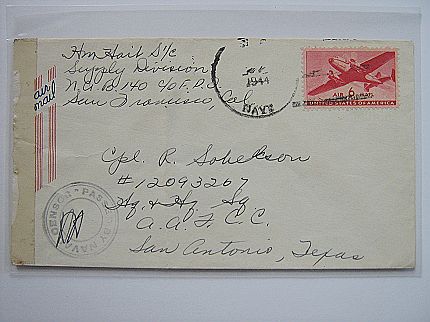 Hm Hoit S1/c
Supply Division
N.A.B. 140 c/o F.P.O.
San Francisco, Cal.
air
mail
1944
NAVY
AIR 6 MAIL
UNITED STATES OF AMERICA
Cpl. R.
#12093267
Hq. & Hq. Sq
A.A.F.C.C.
San Antonio, Texas
PASSED BY NAVAL CENSOR